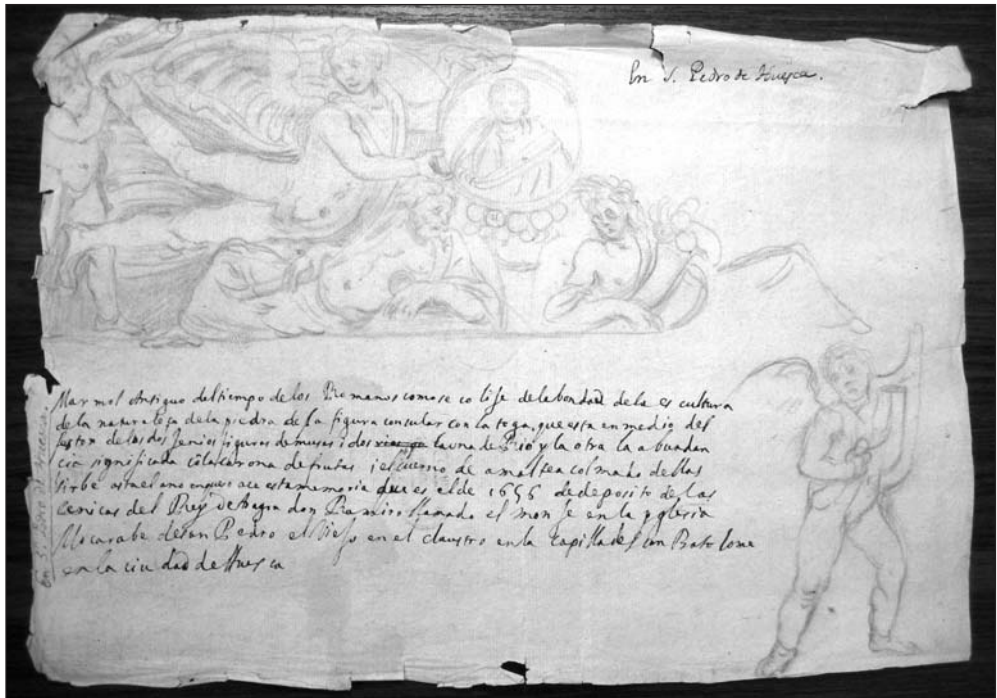 En S. Pedro de Huesca.
Marmol Antiguo del tiempo de los Romanos como se colije de la bondad de la escultura
de la naturaleza de la piedra de la figura consular con la toga, que esta en medio del
feston de los dos jenios figuras de musas i dos la una de Rio y la otra la abundan
cia significada co la corona de frutas i el cuerno de amaltea colmado dellas
sirbe este mesmo en que se ace esta memoria que es el de 1656 de deposito de las
Cenicas del Rey de Aragon don Ramiro llamado el monje en la yglesia
Mocarabe de san Pedro el Biejo en el claustro en la Capilla de san Bartolome
en la ciudad de Huesca
En S. Pedro de Huesca.